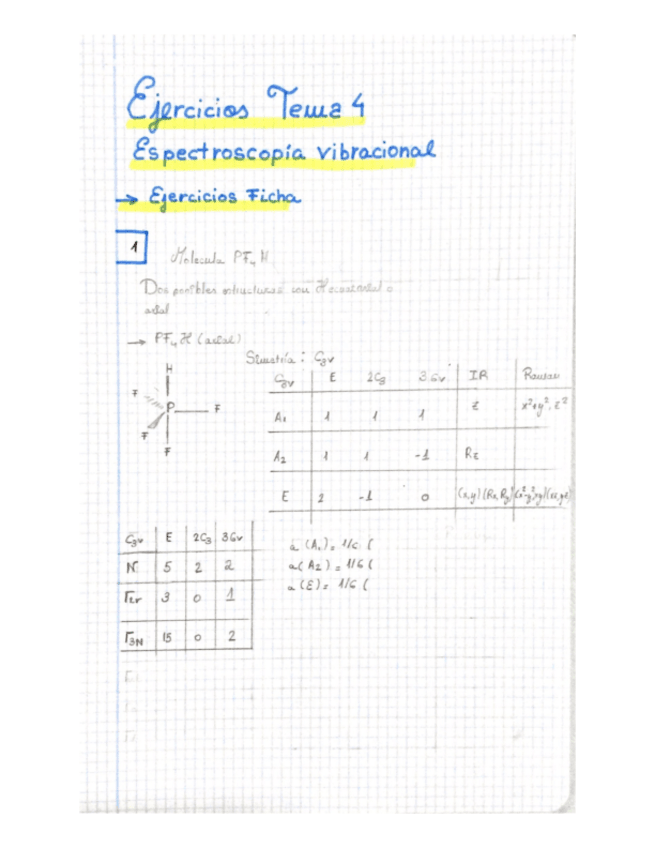 Ejercicios Tema 4
Espectroscopía vibracional
→ Ejercicios Ficha
1
Molecula PF₄H
Dos posibles estructuras con H ecuatorial o
axial
→ PF₄H (axial)
Simetría: C₃v
H
F
P
F
F
F
C₃v E 2C₃ 3σv IR Raman
A₁ 1 1 1 z x²+y², z²
A₂ 1 1 -1 Rz
E 2 -1 0 (x,y)(Rx,Ry) (x²-y²,xy)(xz,yz)
C₃v E 2C₃ 3σv
N 5 2 2
Γtr 3 0 1
Γ3N 15 0 2
a(A₁) = 1/6 (
a(A₂) = 1/6 (
a(E) = 1/6 (